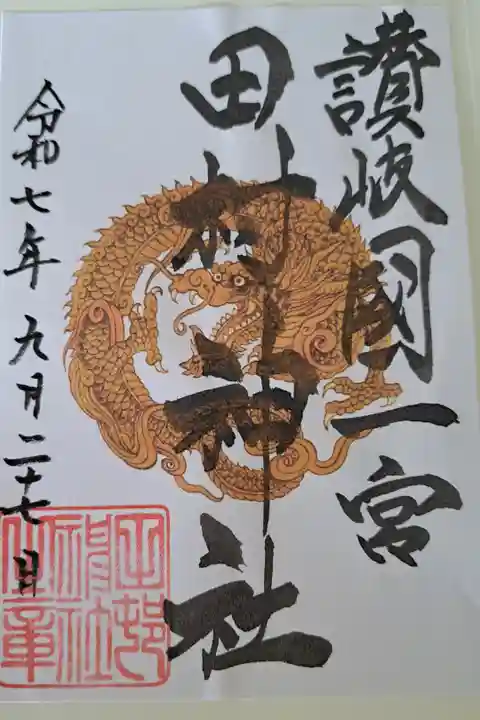 讃岐國一宮
田村神社
令和七年九月二十七日
田村神社之章